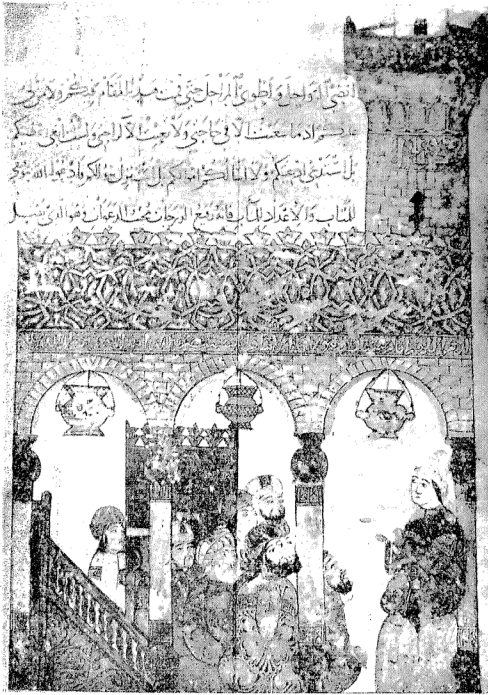 انضي الرواحل واطوي المراحل حتى قمت هذا المقام لديكم ولا من لي
عليكم اذ ما سعيت الا في حاجتي ولا تعبت الا لراحتي ولست ابغي اعطيتكم
بل استدعي ادعيتكم ولا اسألكم اموالكم بل استنزل سؤالكم فادعوا الله بتوفيقي
للمتاب والاعداد للمآب فانه رفيع الدرجات مجيب الدعوات وهو الذي يقبل